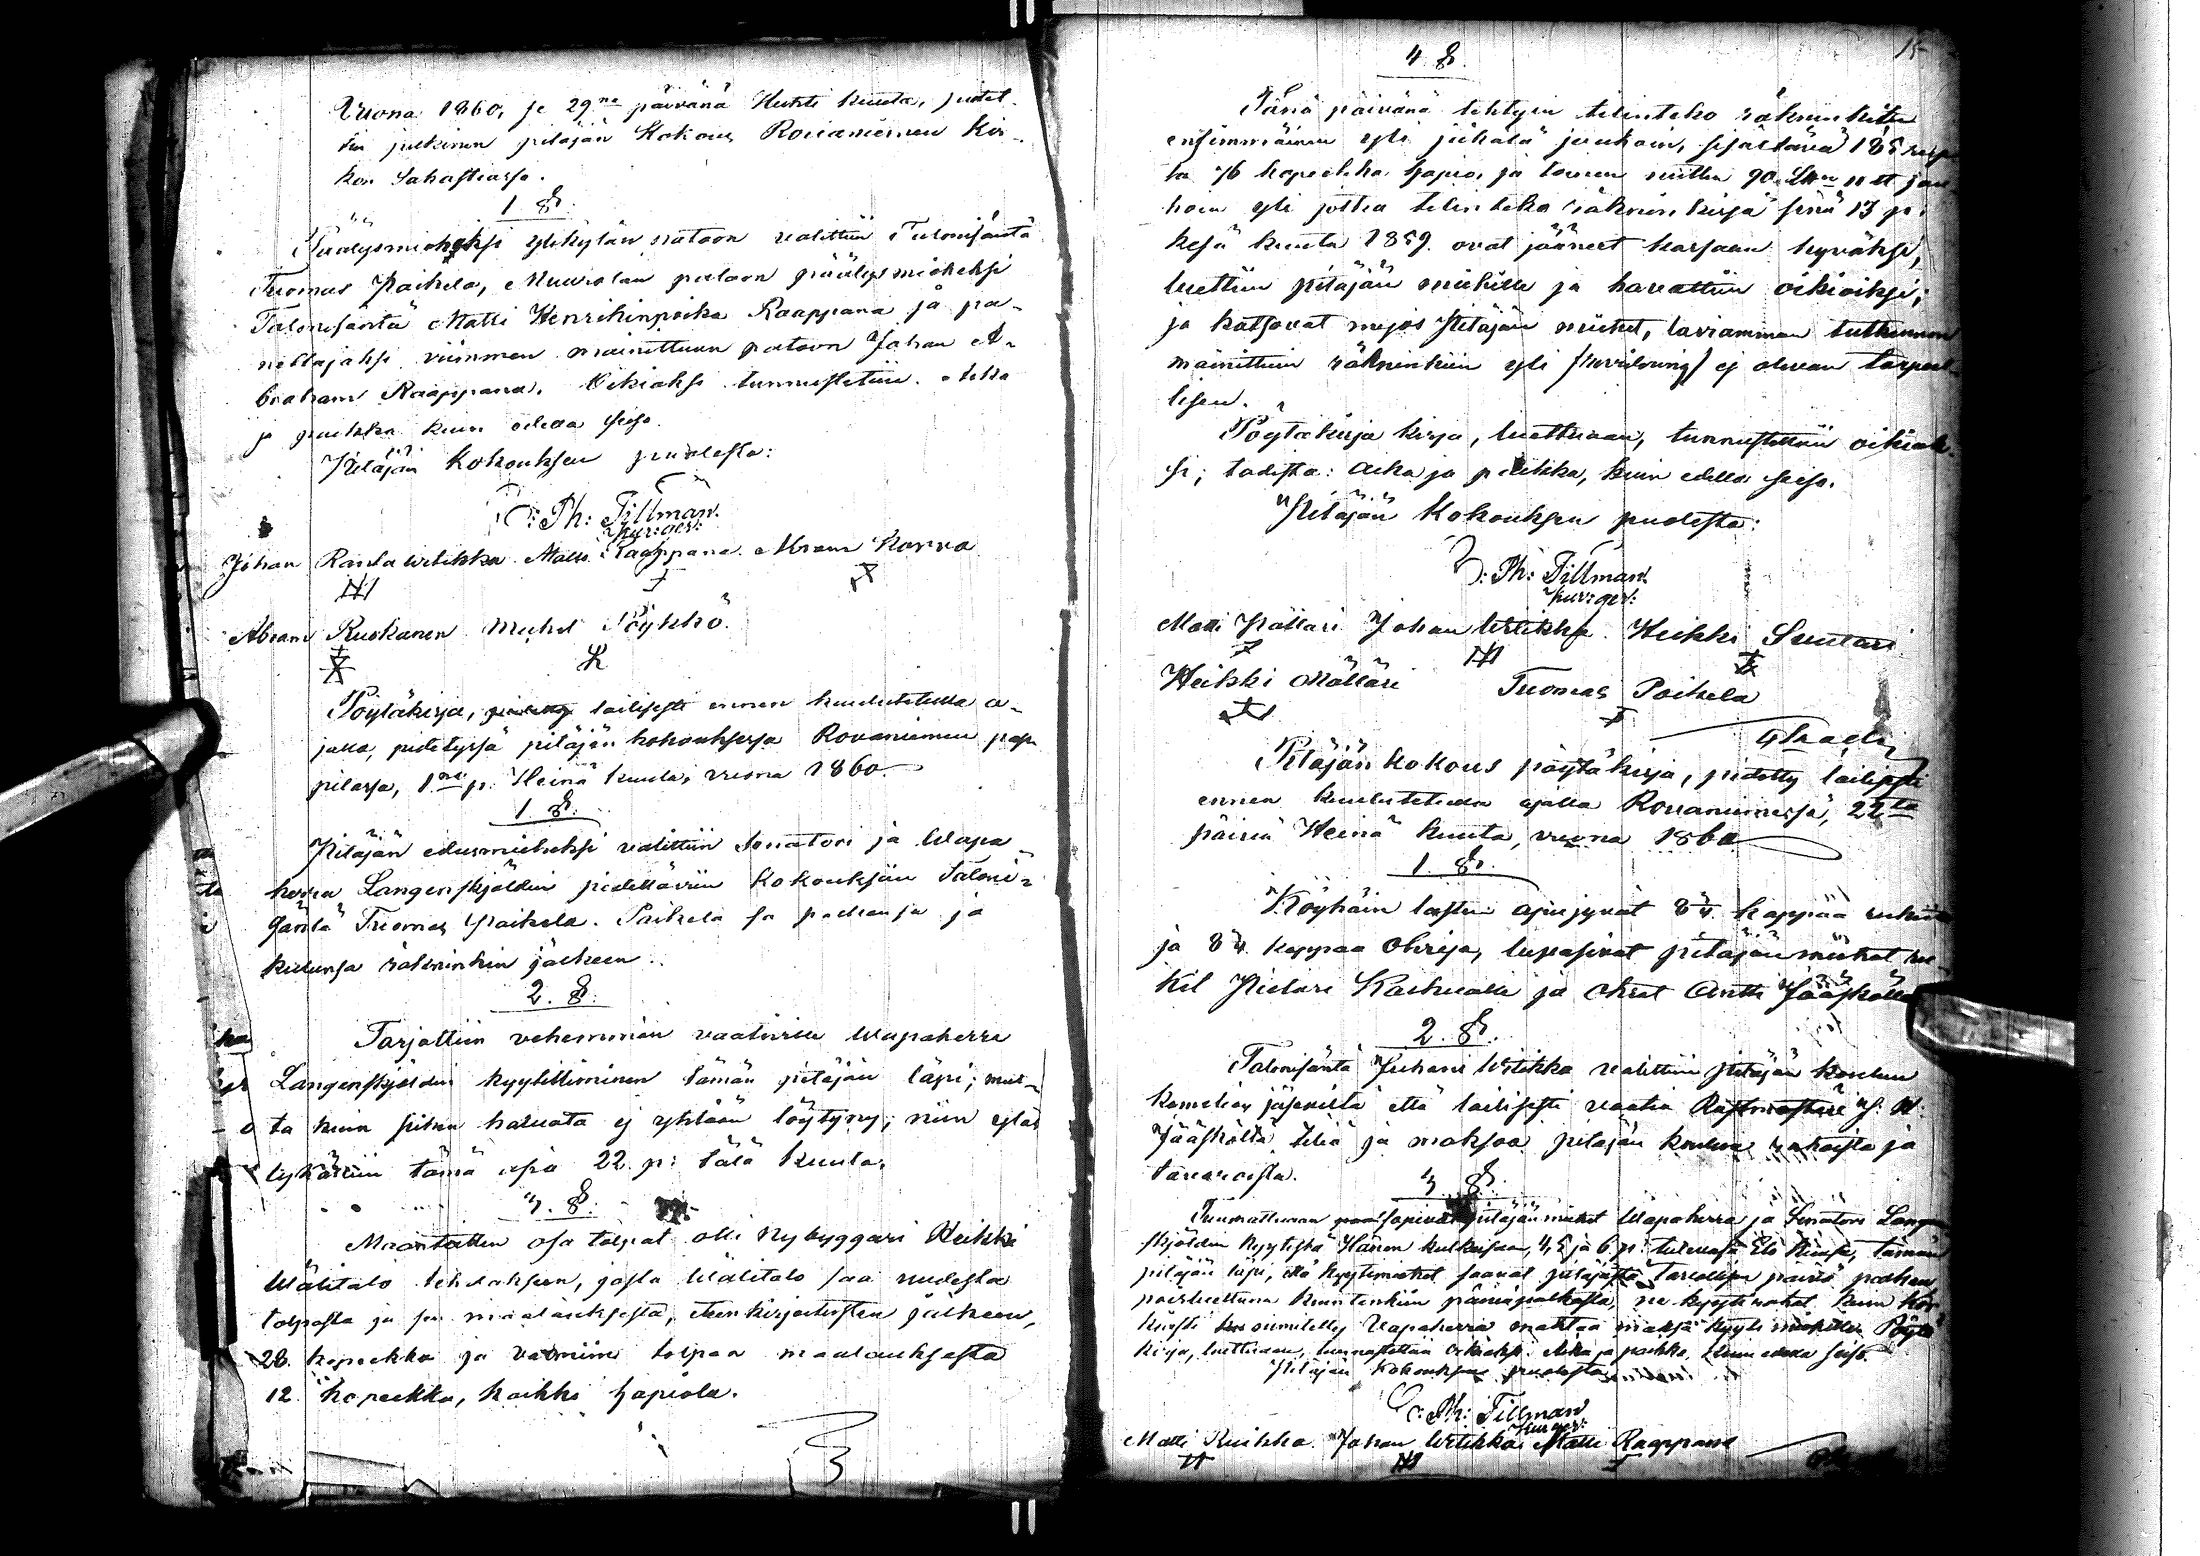 Vuona 1860, se 29na päivänä Huhti kuuta, pidet-
tiin julkinen pitäjän Kokous Rovaniemen Kir-
kon Sakastiassa.
1 §.
Päälysmieheksi ylikylän natoon valittiin Talonisäntä
Tuomas Paikela, Muurolan patoon päälysmieheksi
Talonisäntä Matti Henrikinpoika Raappana ja pa-
neltajaksi viimmen mainittuun patoon Johan A-
braham Raappana. Oikiaksi tunnustetiin. Aika
ja paikka kuin edellä seiso.
Pitäjän Kokouksen puolesta:
C: Ph: Tillman
kur: ger:
Johan Rantawitikka Matts Raappana Abram Korva
Abram Ruokanen Michel Pöykkö
Pöytäkirja, lailisesti ennen kuulutetulla a-
jalla, pidetyssä pitäjän kokouksessa Rovaniemen pap-
pilassa, 1nä p: Heinä kuuta, vuona 1860.
1. §.
Pitäjän edusmieheksi valittiin Senatori ja Wapa-
herra Langenskjöldin pidettäviin Kokouksiin Taloni-
säntä Tuomas Paikela. Paikela sa palkansa ja
kulunsa räkninkin jälkeen.
2. §.
Tarjottiin vehemmän vaativille Wapaherra
Langenskjöldin kyytittiminen tämän pitäjän läpi; mut-
ta kuin siihen haluata ej yhtään löytyny; niin ylös
lykättiin tämä asia 22. p: tätä kuuta.
3. §.
Maantietten osa tolpat otti Nybyggari Heikki
Wälitalo tehdäksen, josta Wälitalo saa uudesta
tolpasta ja sen maalauksesta, itenkirjoitusten jälkeen,
28. kopeekka ja valmiin tolpan maalauksesta
12. kopeekka, kaikki hopiala.
15
4 §.
Tänä päivänä tehtyin telinteko räkninkitten
ensimmäinen yli jukata jauhoin, sisältävä 185 rup-
la 76 kopeekka hopia, ja toinen niitten 90. jau-
hoin yli jotka telinteko räknin kirja sinä 13 p:
kesä kuuta 1859. ovat jääneet kassaan hyväksi,
luettiin pitäjän miehille ja havattiin oikioiksi;
ja katsovat myös Pitäjän miehet, laviamman tutkinnon
mainittuin räkninkiin yli /revidering/ ej olevan tarpeel-
lisen.
Pöytäkirja kirja, luettuaan, tunnustettiin oikiak-
si; todista: Aika ja paikka, kuin edellä seiso.
Pitäjän Kokouksen puolesta:
C: Ph: Tillman
kur: ger:
Matti Pällari Johan Witikka Heikki Suutari
Heikki Mölläri Tuomas Paikela
Pitäjän kokous pöytäkirja, pidetty lailisesti
ennen kuulutetulla ajalla Rovaniemessä, 22ta
päivä Heinä kuuta, vuona 1860
1. §.
Köyhäin lasten apujyvät 8¾ kappaa rukiita
ja 8¾ kappaa Ohrija, lupasivat pitäjän miehet
Pietari Kaihualla ja ohrat Antti Jääskölle
2. §.
Talonisäntä Juhani Witikka valittiin Pitäjän koulun
komitian jäseniltä että lailisesti vaatia Rustmästari
Jääskölta teliä ja maksoa pitäjän koulun rahoista ja
tavaroista.
3. §.
miehet Wapaherra ja Senatori Lang-
skjöldin kyytistä Hänen kulkeissaan, 4, 5 ja 6 p: tulevasa Elo kuusa, tämän
pitäjän läpi, että kyytimiehet saavat pitäjästä tavallisen päivä palkan
Wapaherra mahtaa maksa kyyti miehille Pöytä-
kirja, luettuaan, tunnustettiin oikiaksi. Aika ja paikka, kuin edellä seiso.
Pitäjän Kokouksen puolesta
C: Ph: Tillman
kur: ger:
Matti Ruikka Johan Witikka Matti Raappana